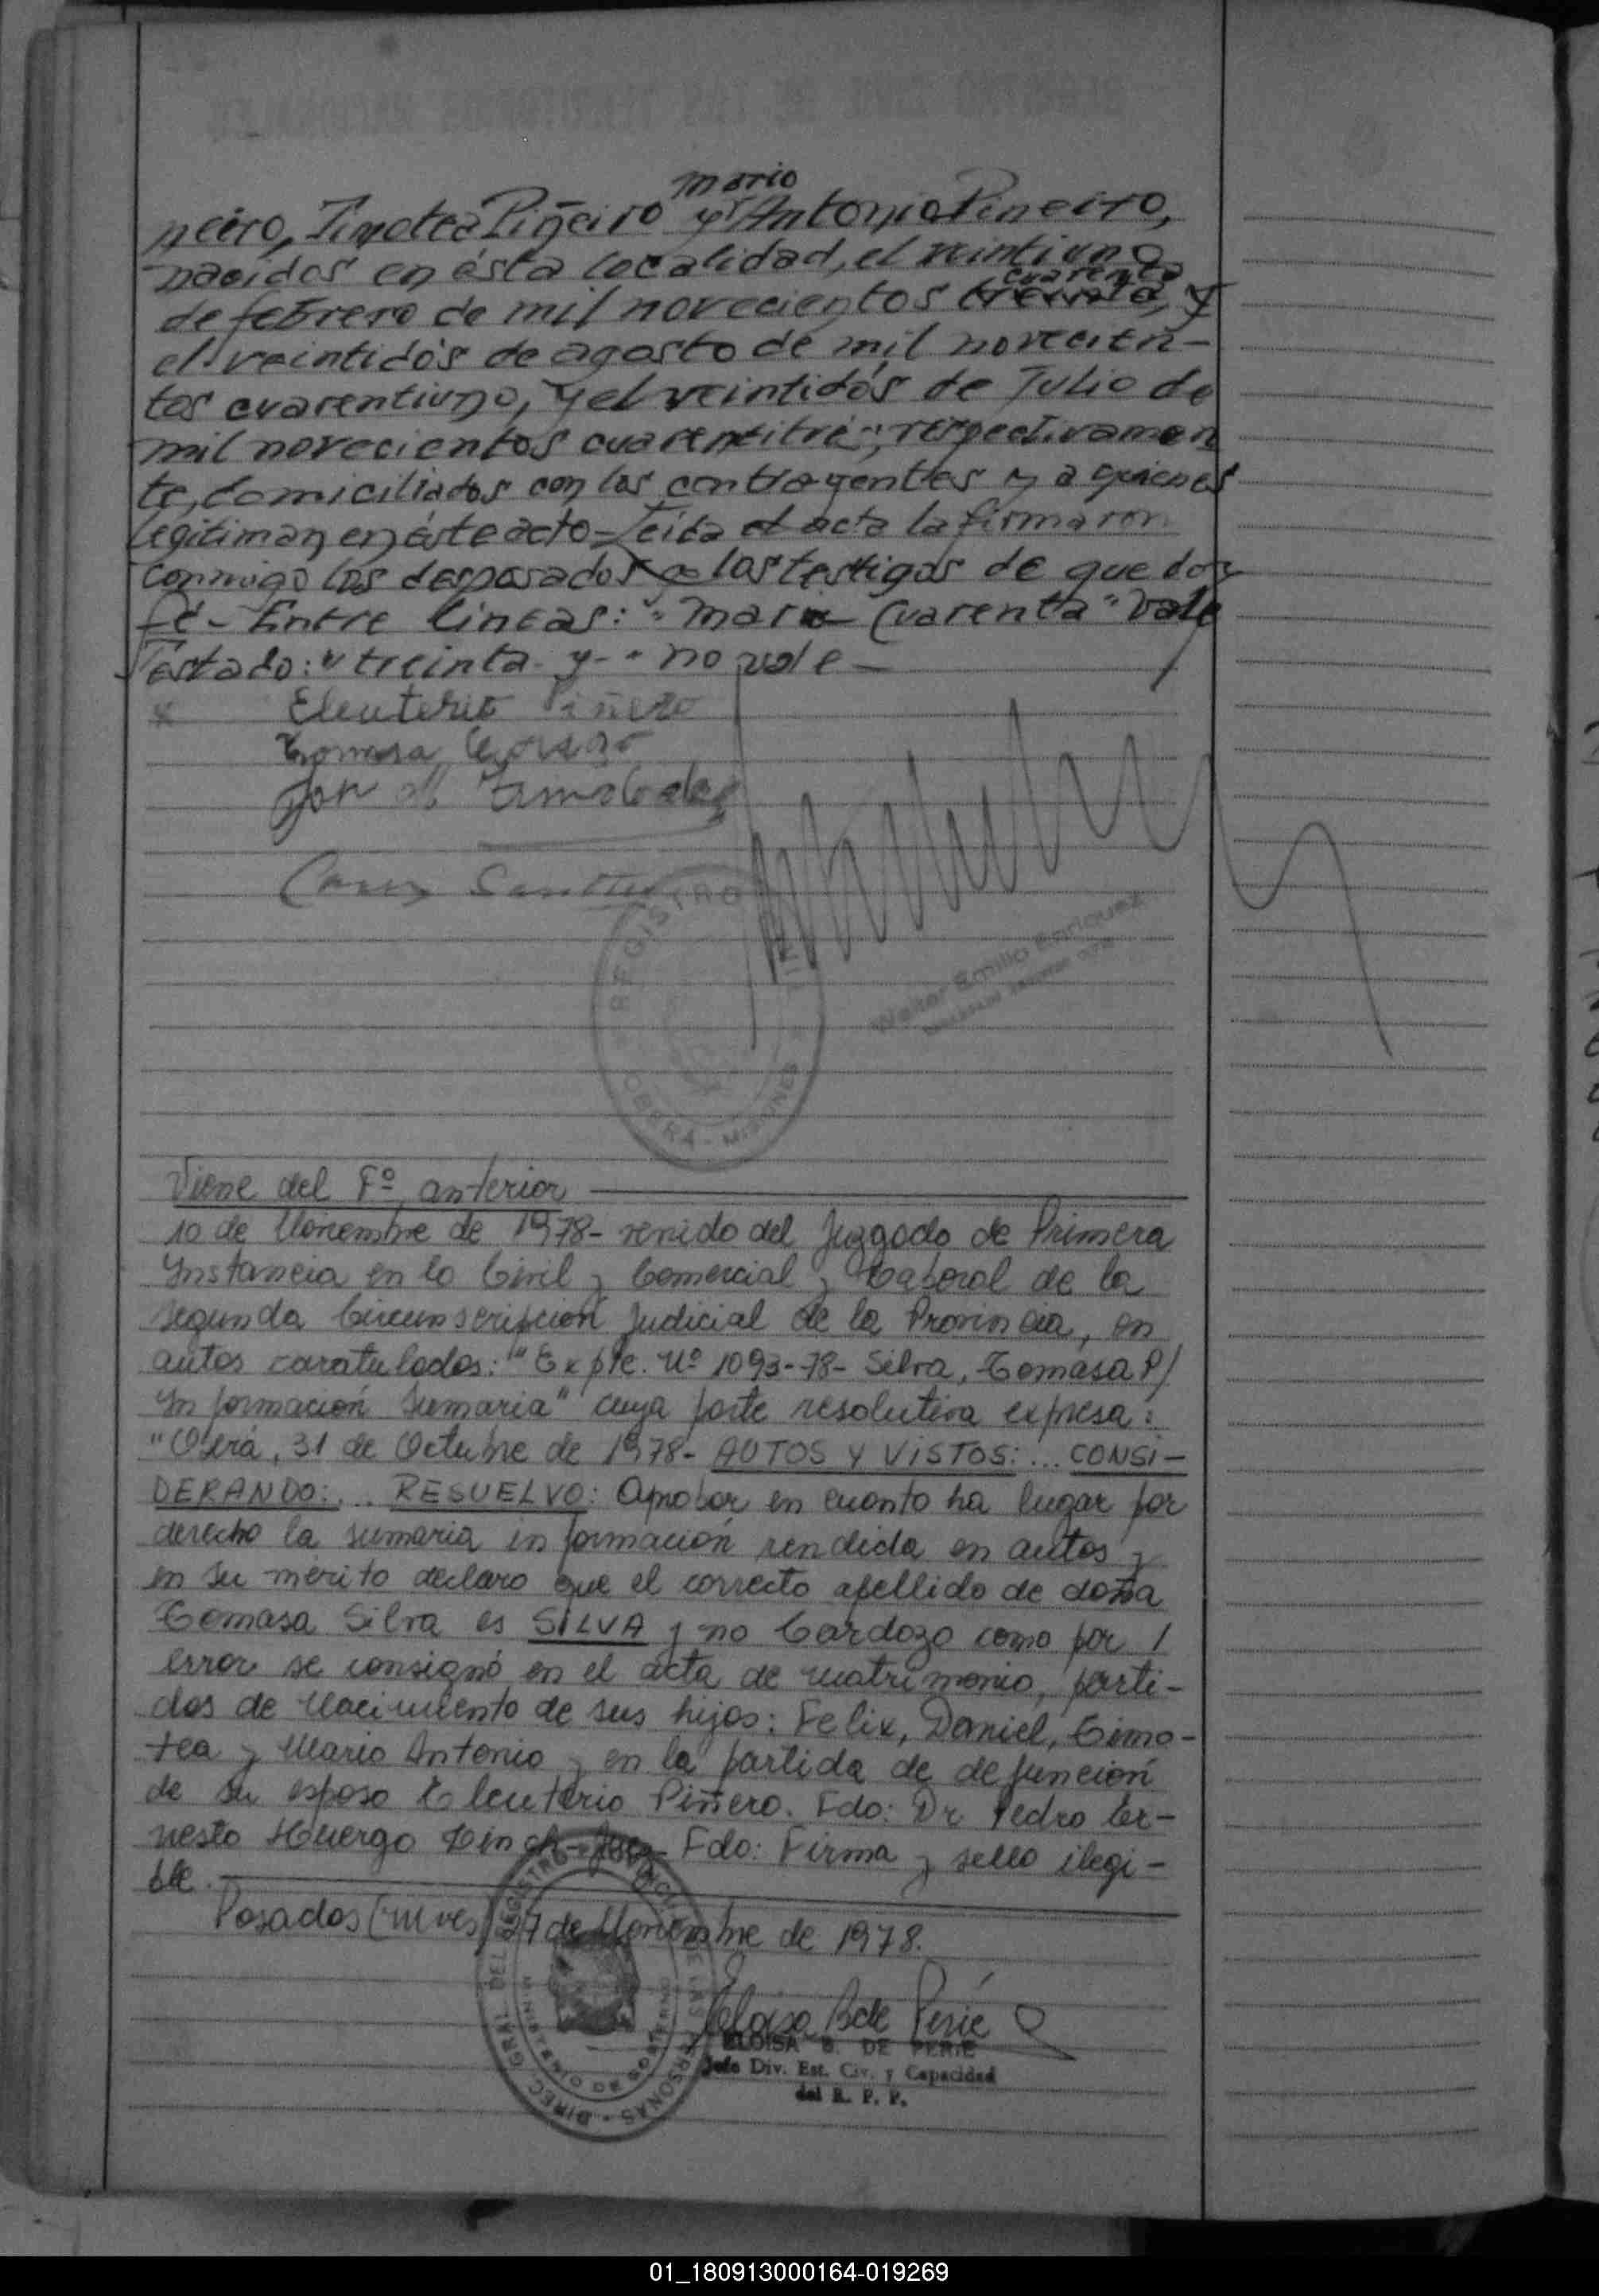 mario
ñeiro, Timotea Piñeiro y Antonio Piñeiro,
nacidos en ésta localidad, el veintiuno
cuarenta
de febrero de mil novecientos treinta, y
el veintidós de agosto de mil novecien-
tos cuarentiuno, y el veintidós de Julio de
mil novecientos cuarentitré, respectivamen
te, domiciliados con los contrayentes y a quienes
legitiman en éste acto - Leída el acta la firmaron
conmigo los desposados y los testigos de que doy
fé - Entre líneas: "mario cuarenta" vale
Testado: "treinta - y - " no vale -
Eleuterio Piñero
Tomasa
REGISTRO CIVIL
OBERA - MISIONES
Walter Emilio Enriquez
Viene del Fº anterior
10 de Noviembre de 1978 - venido del Juzgado de Primera
Instancia en lo Civil y Comercial y Laboral de la
segunda Circunscripción Judicial de la Provincia, en
autos caratulados: "Expte. Nº 1093-78- Silva, Tomasa P/
Información Sumaria" cuya parte resolutiva expresa:
"Oberá, 31 de Octubre de 1978- AUTOS Y VISTOS: ... CONSI-
DERANDO: ... RESUELVO: Aprobar en cuanto ha lugar por
derecho la sumaria información rendida en autos y
en su mérito declaro que el correcto apellido de doña
Tomasa Silva es SILVA y no Cardozo como por /
error se consignó en el acta de matrimonio, parti-
das de Nacimiento de sus hijos: Felix, Daniel, Timo-
tea y Mario Antonio y en la partida de defunción
de su esposo Eleuterio Piñero. Fdo: Dr. Pedro Er-
nesto Huergo Juez - Fdo: Firma y sello ilegi-
ble.
Posadas (Mnes) 27 de Noviembre de 1978.
Eloisa B de Perié
ELOISA B. DE PERIE
Jefe Div. Est. Civ. y Capacidad
del R. P. P.
01_180913000164-019269